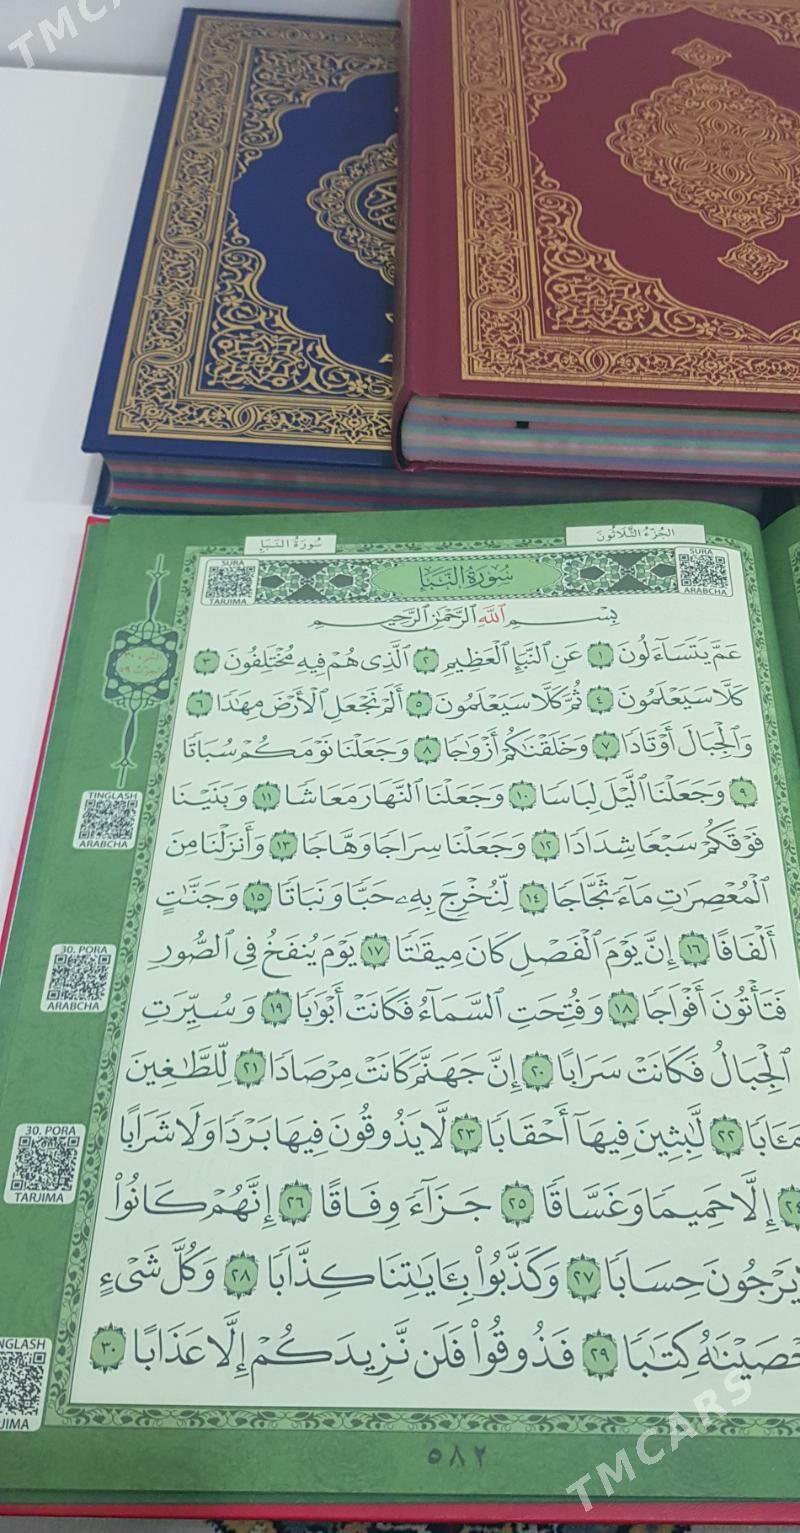 TMCARS
الجُزْءُ الثَّلَاثُونَ
سُورَةُ النَّبَإِ
SURA
ARABCHA
سُورَةُ النَّبَإِ
SURA
TARJIMA
بِسْمِ ٱللَّهِ ٱلرَّحْمَٰنِ ٱلرَّحِيمِ
عَمَّ يَتَسَآءَلُونَ ١ عَنِ ٱلنَّبَإِ ٱلْعَظِيمِ ٢ ٱلَّذِى هُمْ فِيهِ مُخْتَلِفُونَ ٣
كَلَّا سَيَعْلَمُونَ ٤ ثُمَّ كَلَّا سَيَعْلَمُونَ ٥ أَلَمْ نَجْعَلِ ٱلْأَرْضَ مِهَٰدًا ٦
وَٱلْجِبَالَ أَوْتَادًا ٧ وَخَلَقْنَٰكُمْ أَزْوَٰجًا ٨ وَجَعَلْنَا نَوْمَكُمْ سُبَاتًا
٩ وَجَعَلْنَا ٱلَّيْلَ لِبَاسًا ١٠ وَجَعَلْنَا ٱلنَّهَارَ مَعَاشًا ١١ وَبَنَيْنَا
فَوْقَكُمْ سَبْعًا شِدَادًا ١٢ وَجَعَلْنَا سِرَاجًا وَهَّاجًا ١٣ وَأَنزَلْنَا مِنَ
ٱلْمُعْصِرَٰتِ مَآءً ثَجَّاجًا ١٤ لِّنُخْرِجَ بِهِۦ حَبًّا وَنَبَاتًا ١٥ وَجَنَّٰتٍ
أَلْفَافًا ١٦ إِنَّ يَوْمَ ٱلْفَصْلِ كَانَ مِيقَٰتًا ١٧ يَوْمَ يُنفَخُ فِى ٱلصُّورِ
فَتَأْتُونَ أَفْوَاجًا ١٨ وَفُتِحَتِ ٱلسَّمَآءُ فَكَانَتْ أَبْوَٰبًا ١٩ وَسُيِّرَتِ
ٱلْجِبَالُ فَكَانَتْ سَرَابًا ٢٠ إِنَّ جَهَنَّمَ كَانَتْ مِرْصَادًا ٢١ لِّلطَّٰغِينَ
مَـَٔابًا ٢٢ لَّٰبِثِينَ فِيهَآ أَحْقَابًا ٢٣ لَّا يَذُوقُونَ فِيهَا بَرْدًا وَلَا شَرَابًا
٢٤ إِلَّا حَمِيمًا وَغَسَّاقًا ٢٥ جَزَآءً وِفَاقًا ٢٦ إِنَّهُمْ كَانُوا۟
يَرْجُونَ حِسَابًا ٢٧ وَكَذَّبُوا۟ بِـَٔايَٰتِنَا كِذَّابًا ٢٨ وَكُلَّ شَىْءٍ
حْصَيْنَٰهُ كِتَٰبًا ٢٩ فَذُوقُوا۟ فَلَن نَّزِيدَكُمْ إِلَّا عَذَابًا ٣٠
TINGLASH
ARABCHA
30. PORA
ARABCHA
30. PORA
TARJIMA
NGLASH
JIMA
٥٨٢
TMCARS